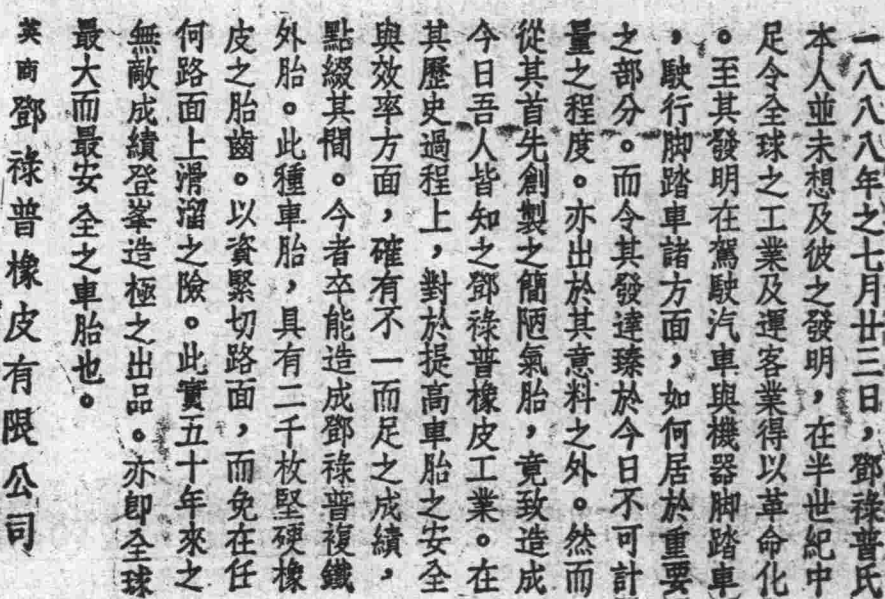 一八八八年之七月廿三日，鄧祿普氏
本人並未想及彼之發明，在半世紀中
足令全球之工業及運客業得以革命化
。至其發明在駕駛汽車與機器脚踏車
，駛行脚踏車諸方面，如何居於重要
之部分。而令其發達臻於今日不可計
量之程度。亦出於其意料之外。然而
從其首先創製之簡陋氣胎，竟致造成
今日吾人皆知之鄧祿普橡皮工業。在
其歷史過程上，對於提高車胎之安全
與效率方面，確有不一而足之成績，
點綴其間。今者卒能造成鄧祿普複鐵
外胎。此種車胎，具有二千枚堅硬橡
皮之胎齒。以資緊切路面，而免在任
何路面上滑溜之險。此實五十年來之
無敵成績登峯造極之出品。亦即全球
最大而最安全之車胎也。
英商鄧祿普橡皮有限公司